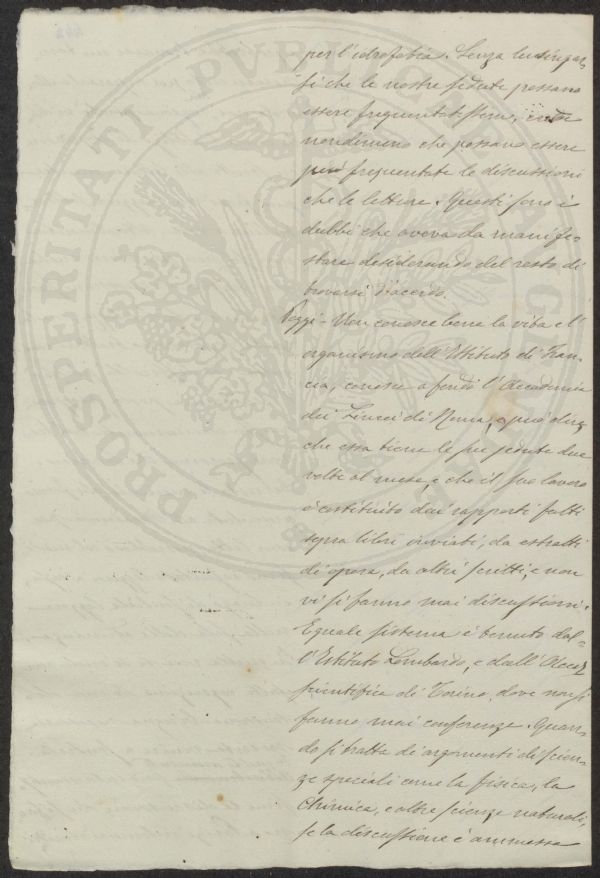 per l'idrofobia. Senza lusingar=
si che le nostre sedute possano
essere frequentatissime, crede
nondimeno che possano essere
più frequentate le discussioni
che le letture. Questi sono i
dubbi che aveva da manife=
stare desiderando del resto di
trovarsi d'accordo.
Poggi - Non conosce bene la vita e l'
organismo dell'Istituto di Fran=
cia, conosce a fondo l'Accademia
dei Lincei di Roma, e può dire
che essa tiene le sue sedute due
volte al mese, e che il suo lavoro
è costituito dai rapporti fatti
sopra libri inviati, da estratti
di opere, da altri scritti, e non
vi si fanno mai discussioni.
Eguale sistema è tenuto dal=
l'Istituto Lombardo, e dall'Accad.
scientifica di Torino, dove non si
fanno mai conferenze. Quan=
do si tratta di argomenti di scien=
ze speciali come la fisica, la
Chimica, e altre scienze naturali,
se la discussione è ammessa
PROSPERITATI PUBLICAE AUGENDAE